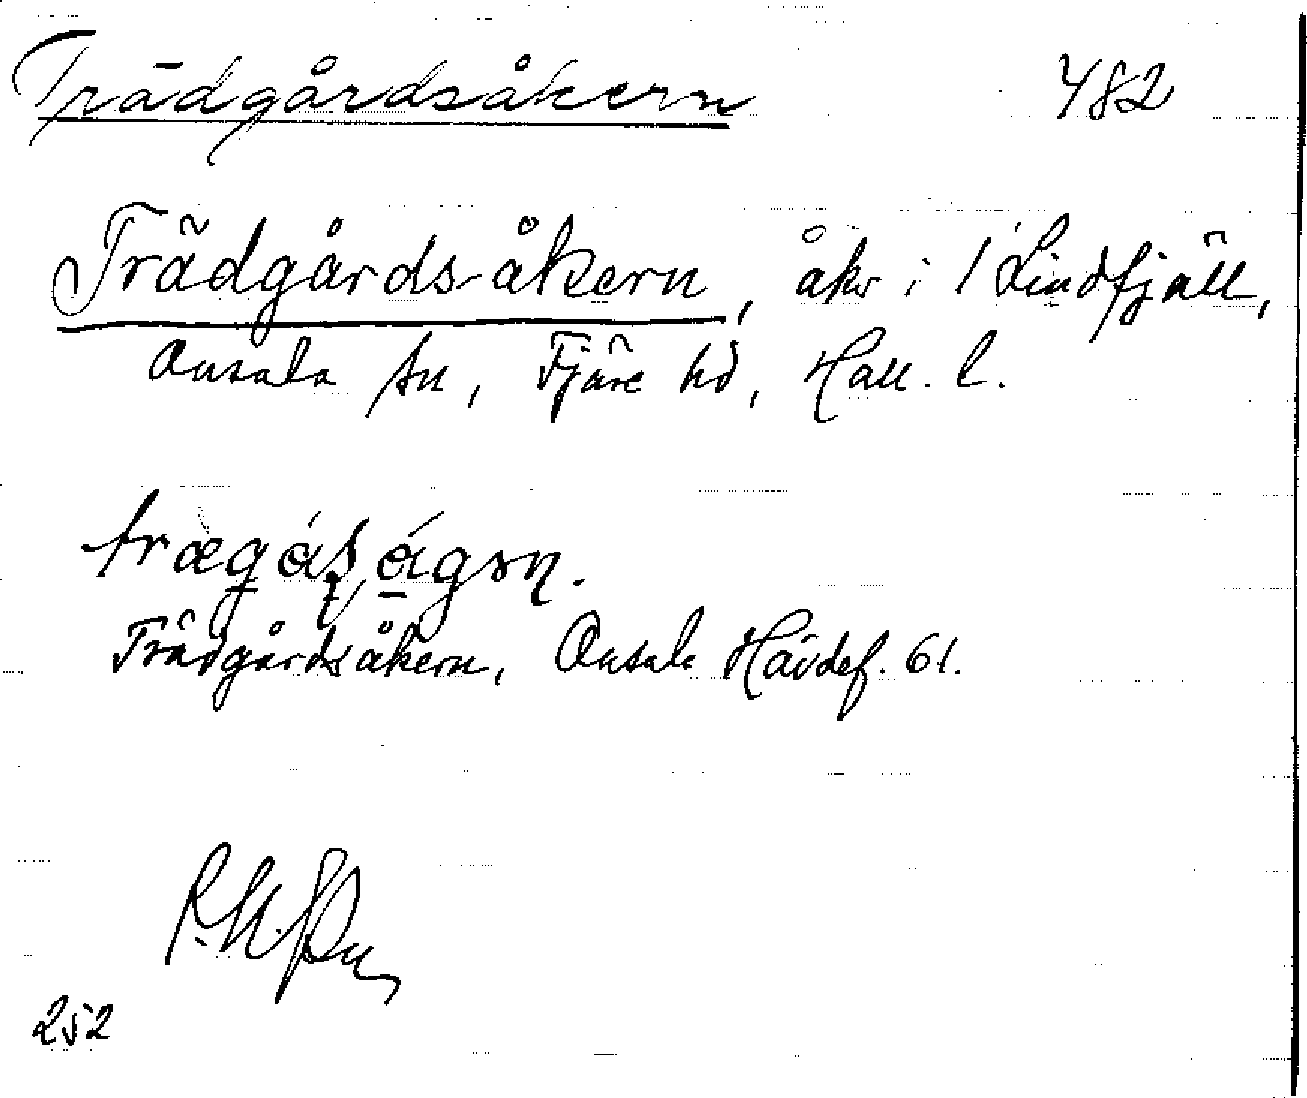 Trädgårdsåkern 482
Trädgårdsåkern, åkr i 1 Lindfjäll,
Onsala sn, Fjäre hd, Hall. l.
trægáságən.
Trädgårdsåkern, Onsala Hävdef. 61.
252